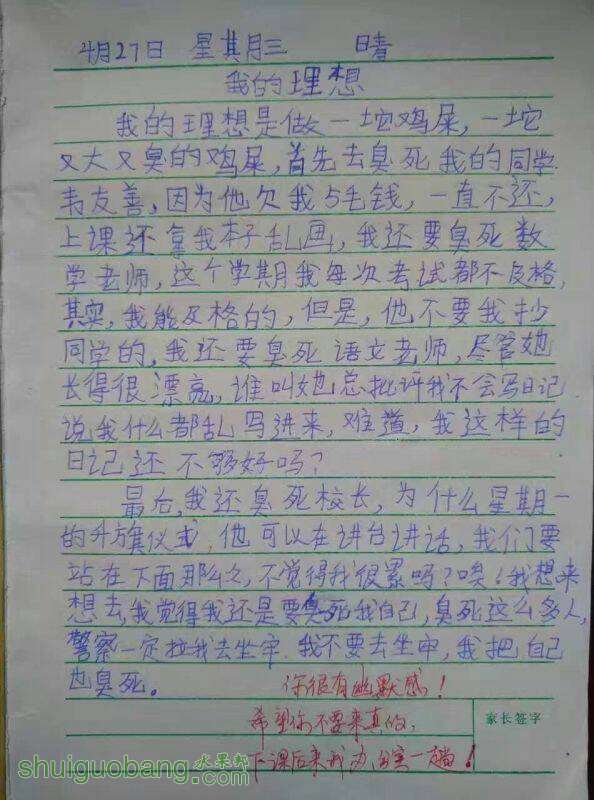 4月27日 星其月三 晴
我的理想
我的理想是做一坨鸡屎,一坨
又大又臭的鸡屎,首先去臭死我的同学
韦友善,因为他欠我5毛钱,一直不还,
上课还拿我本子乱画,我还要臭死数
学老师,这个学期我每次考试都不及格,
其实,我能及格的,但是,他不要我抄
同学的,我还要臭死语文老师,尽管她
长得很漂亮,谁叫她总批评我不会写日记
说我什么都乱写进来,难道,我这样的
日记还不够好吗?
最后,我还臭死校长,为什么星期一
的升旗仪式,他可以在讲台讲话,我们要
站在下面那么久,不觉得我很累吗?唉!我想来
想去,我觉得我还是要臭死我自己,臭死这么多人,
警察一定拉我去坐牢.我不要去坐牢,我把自己
也臭死。
你很有幽默感!
希望你不要来真的,
家长签字
下课后来我办公室一趟!
水果帮
shuiguobang.com